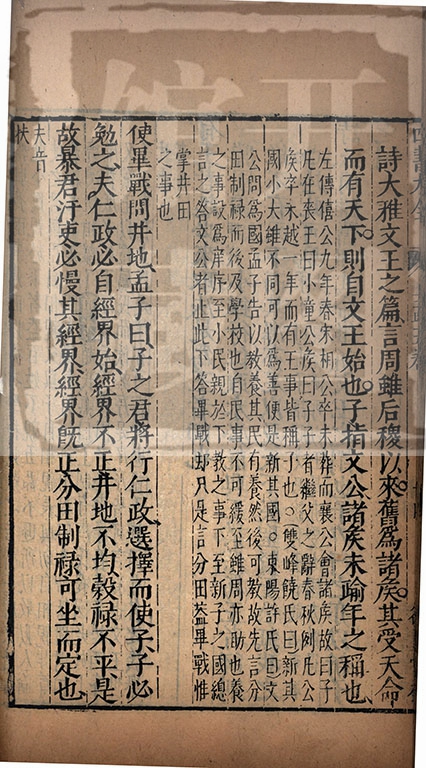 詩大雅文王之篇言周雖后稷以來舊為諸矦其受天命
而有天下則自文王始也子指文公諸矦未踰年之稱也
左傳僖公九年春宋桓公卒未葬而襄公會諸矦故曰子
凡在喪王曰小童公矦曰子子者繼父之辭春秋例凡公
矦卒未越一年而有王事皆稱子也雙峰饒氏曰新其
國小大雖不同可以為善便是新其國東陽許氏曰文
公問為國孟子告以教養其民有養然後可教故先言分
田制祿而後及學校也自民事不可緩至雖周亦助也養
之事設為庠序至小民親於下教之事下至新子之國總
言之答文公者止此下答畢戰却只是言分田葢畢戰惟
掌井田
之事也
使畢戰問井地孟子曰子之君將行仁政選擇而使子子必
勉之夫仁政必自經界始經界不正井地不均穀祿不平是
故暴君汙吏必慢其經界經界旣正分田制祿可坐而定也
夫音
扶